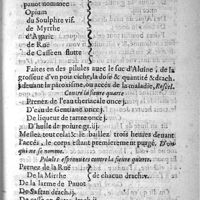 pauot nommee
Opium
du Soulphre vif.
de Myrrhe
d'Agaric
de Rue
de Castoree
Faites en des pilules auec le suc d'Aluine, de la
grosseur d'vn pois ciche, la dose & quantité & drach.
j. deuant le paroxisme, ou accés de la maladie,
Contre la fieure quarte
Prenez de l'eau theriacale once j.
D'eau de Gentiane once j.
De liqueur de tartre once j.
D'huile de poiure
Meslez tout cela: & le baillez trois heures deuant
l'accés, le corps estant premierement purgé.
qui ne se nomme.
Pilules esprouuees contre la fieure quarte.
Prenez de la Rue
De la Mirrhe
de chacun drach
De la larme de Pauot
De